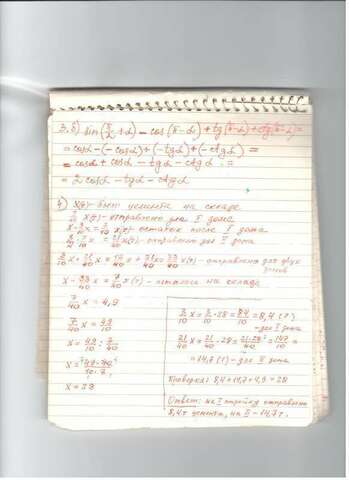 3. б) sin(π/2 + α) - cos(π - α) + tg(π - α) + ctg(π - α) =
= cosα - (-cosα) + (-tgα) + (-ctgα) =
= cosα + cosα - tgα - ctgα =
= 2cosα - tgα - ctgα
4) X(т) - было цемента на складе
3/10 X(т) - отправлено для I дома
X - 3/10 X = 7/10 X(т) остаток после I дома
21/40 X(т) - отправлено для II дома
3/10 X + 21/40 X = 33/40 X(т) - отправлено для двух домов
X - 33/40 X = 7/40 X(т) - осталось на складе
7/40 X = 4,9
7/40 X = 49/10
X = 49/10 : 7/40
X = 49·40/10·7
X = 28
3/10 X = 3/10 · 28 = 84/10 = 8,4 (т)
- для I дома
21/40 X = 21/40 · 28 = 21·28/40 = 147/10 =
= 14,7 (т) - для II дома
Проверка: 8,4 + 14,7 + 4,9 = 28
Ответ: на I стройку отправлено
8,4 т цемента, на II - 14,7 т.